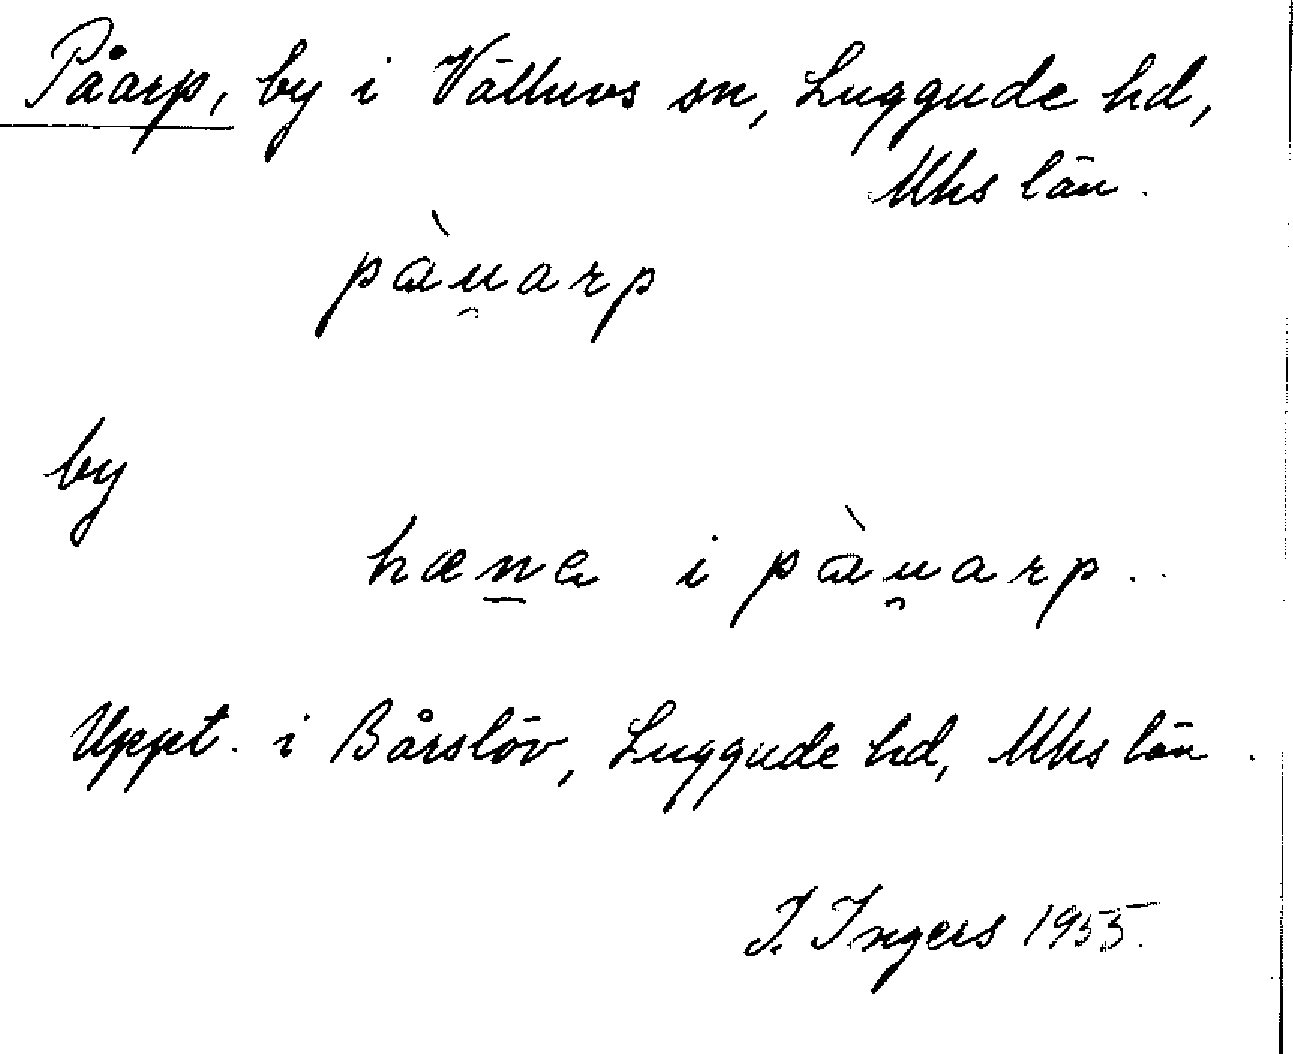 Påarp, by i Välluvs sn, Luggude hd,
Mhs län.
pàu̯arp
by
hæn̲a i pàu̯arp..
Uppt. i Bårslöv, Luggude hd, Mhs län.
I. Ingers 1955.